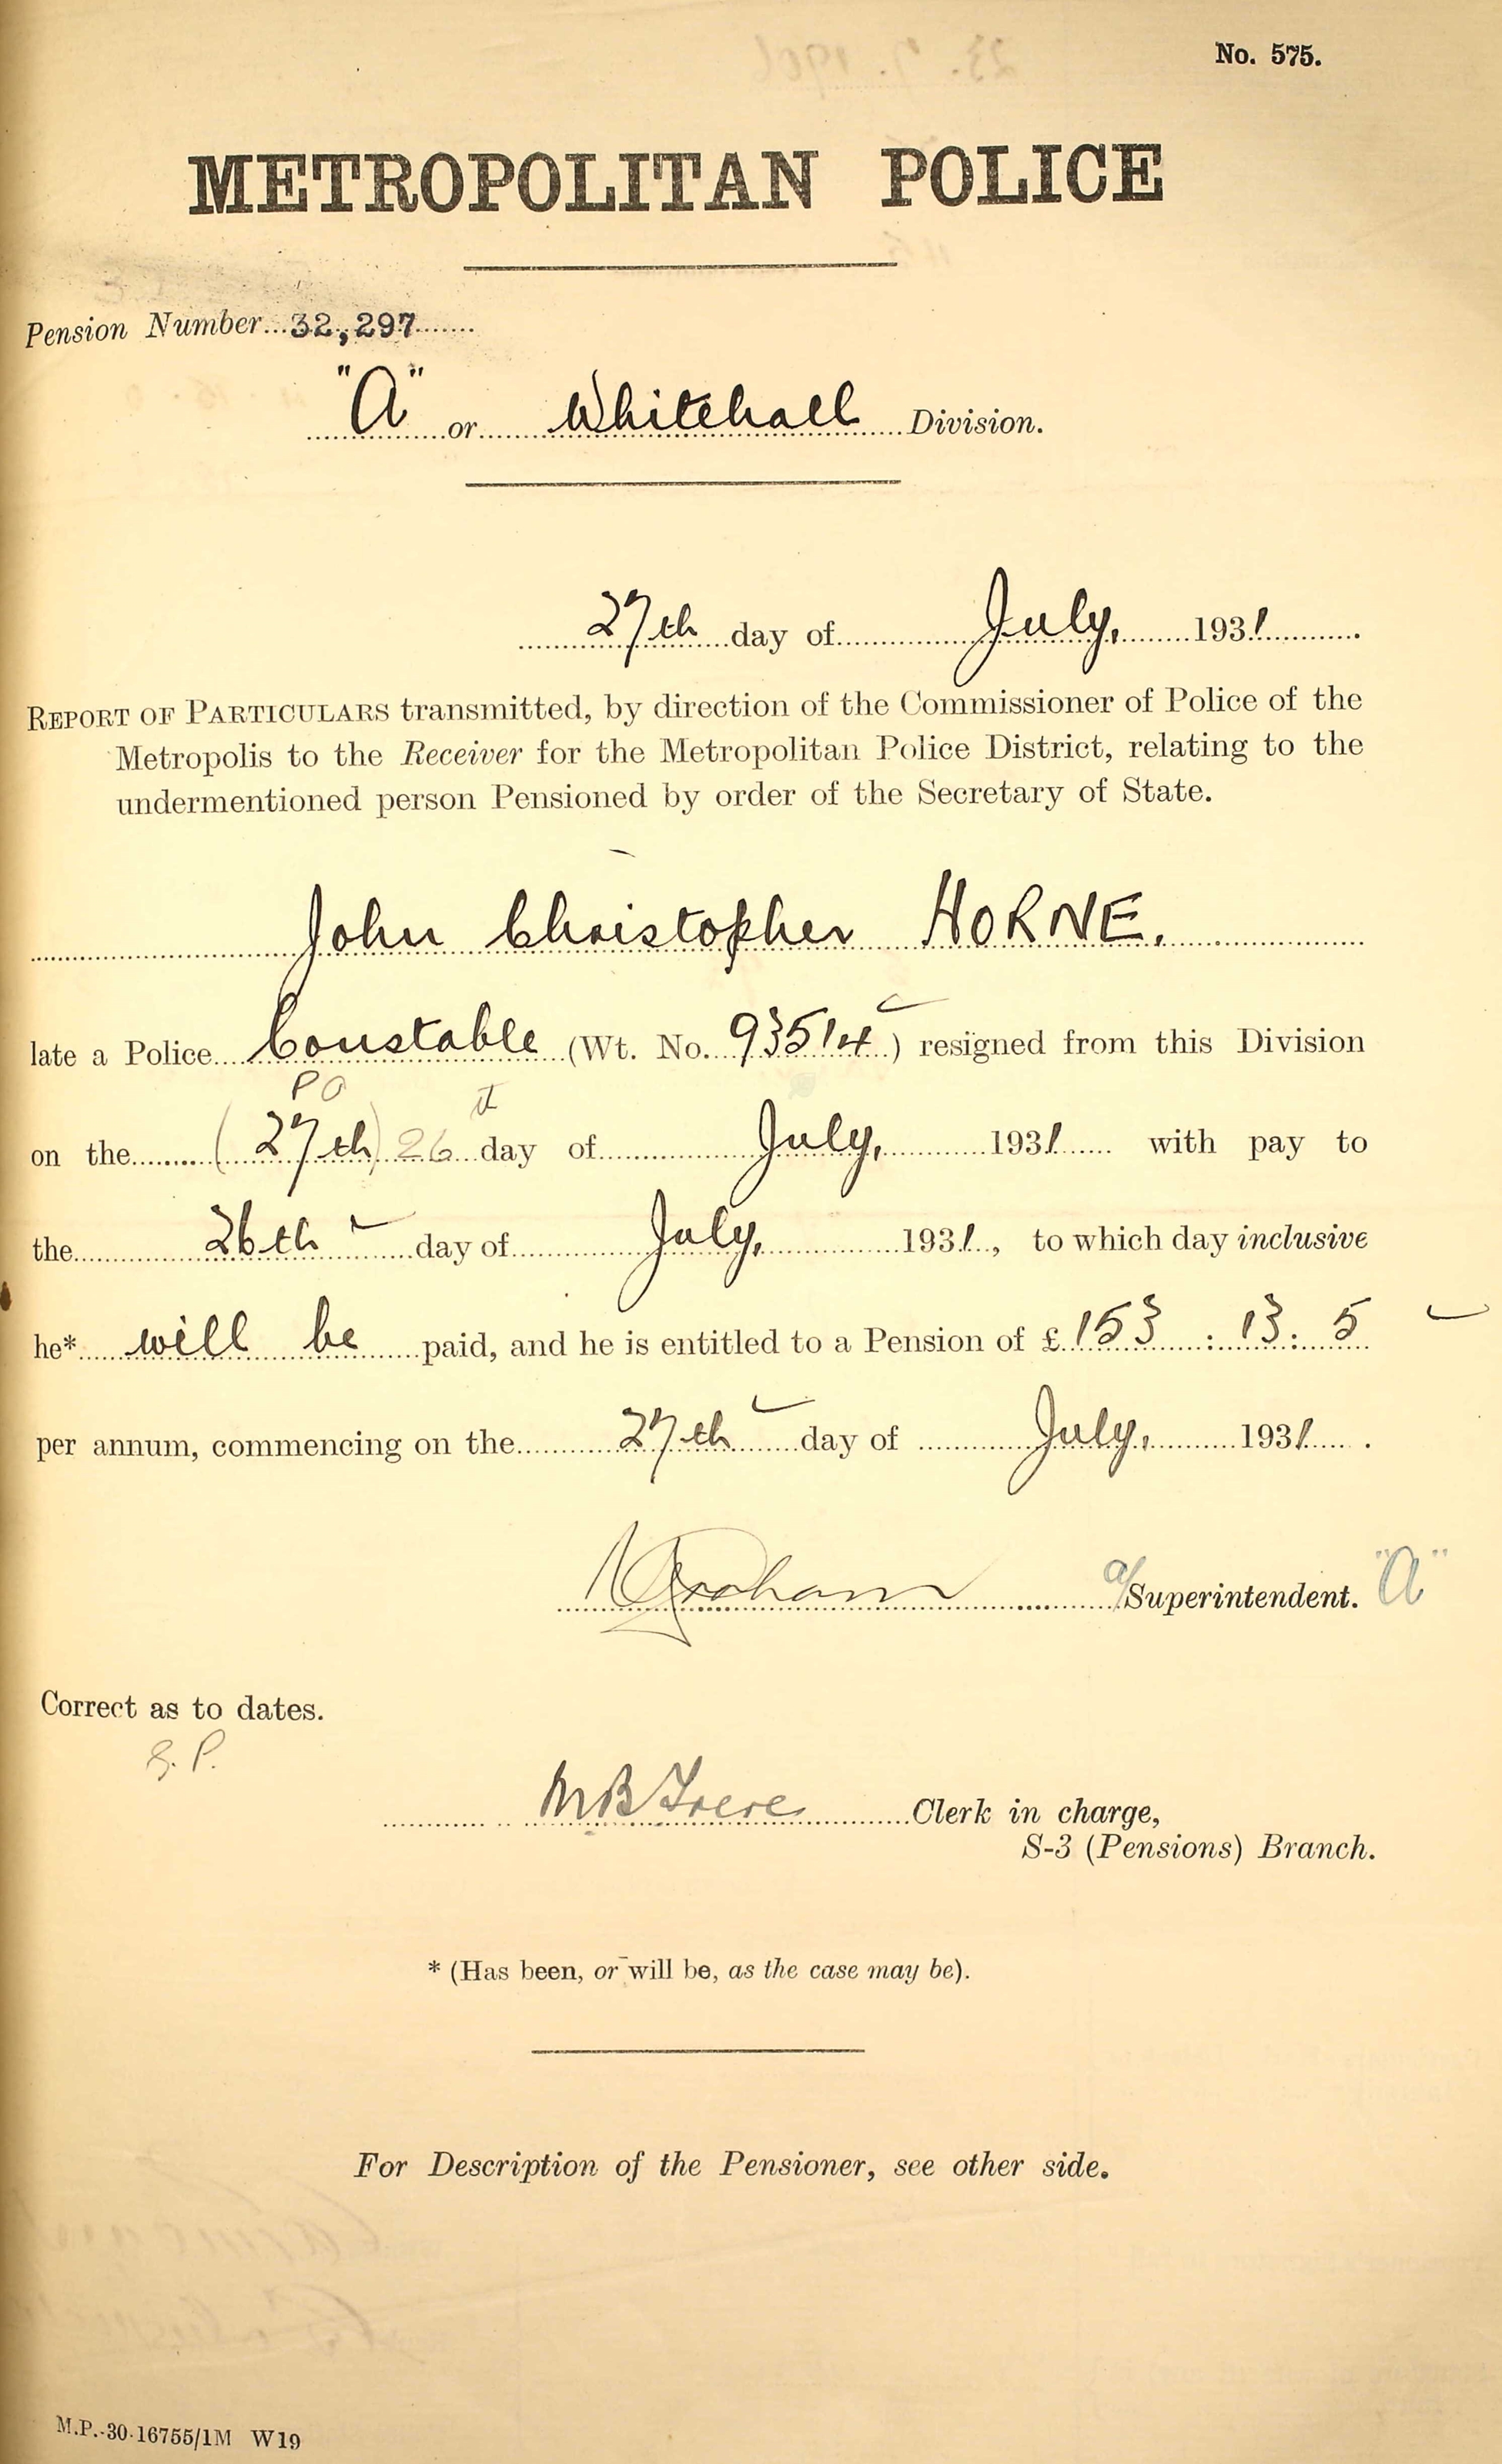 No. 575.
METROPOLITAN POLICE
Pension Number...32,297
"A" or Whitehall Division.
27th day of July, 1931.
REPORT OF PARTICULARS transmitted, by direction of the Commissioner of Police of the
Metropolis to the Receiver for the Metropolitan Police District, relating to the
undermentioned person Pensioned by order of the Secretary of State.
John Christopher HORNE.
late a Police Constable (Wt. No. 93514) resigned from this Division
on the (27th) 26 day of July, 1931 with pay to
the 26th day of July, 1931, to which day inclusive
he* will be paid, and he is entitled to a Pension of £153 : 13 : 5
per annum, commencing on the 27th day of July, 1931.
Graham a/Superintendent. "A"
Correct as to dates.
Clerk in charge,
S-3 (Pensions) Branch.
* (Has been, or will be, as the case may be).
For Description of the Pensioner, see other side.
M.P.-30-16755/1M W19